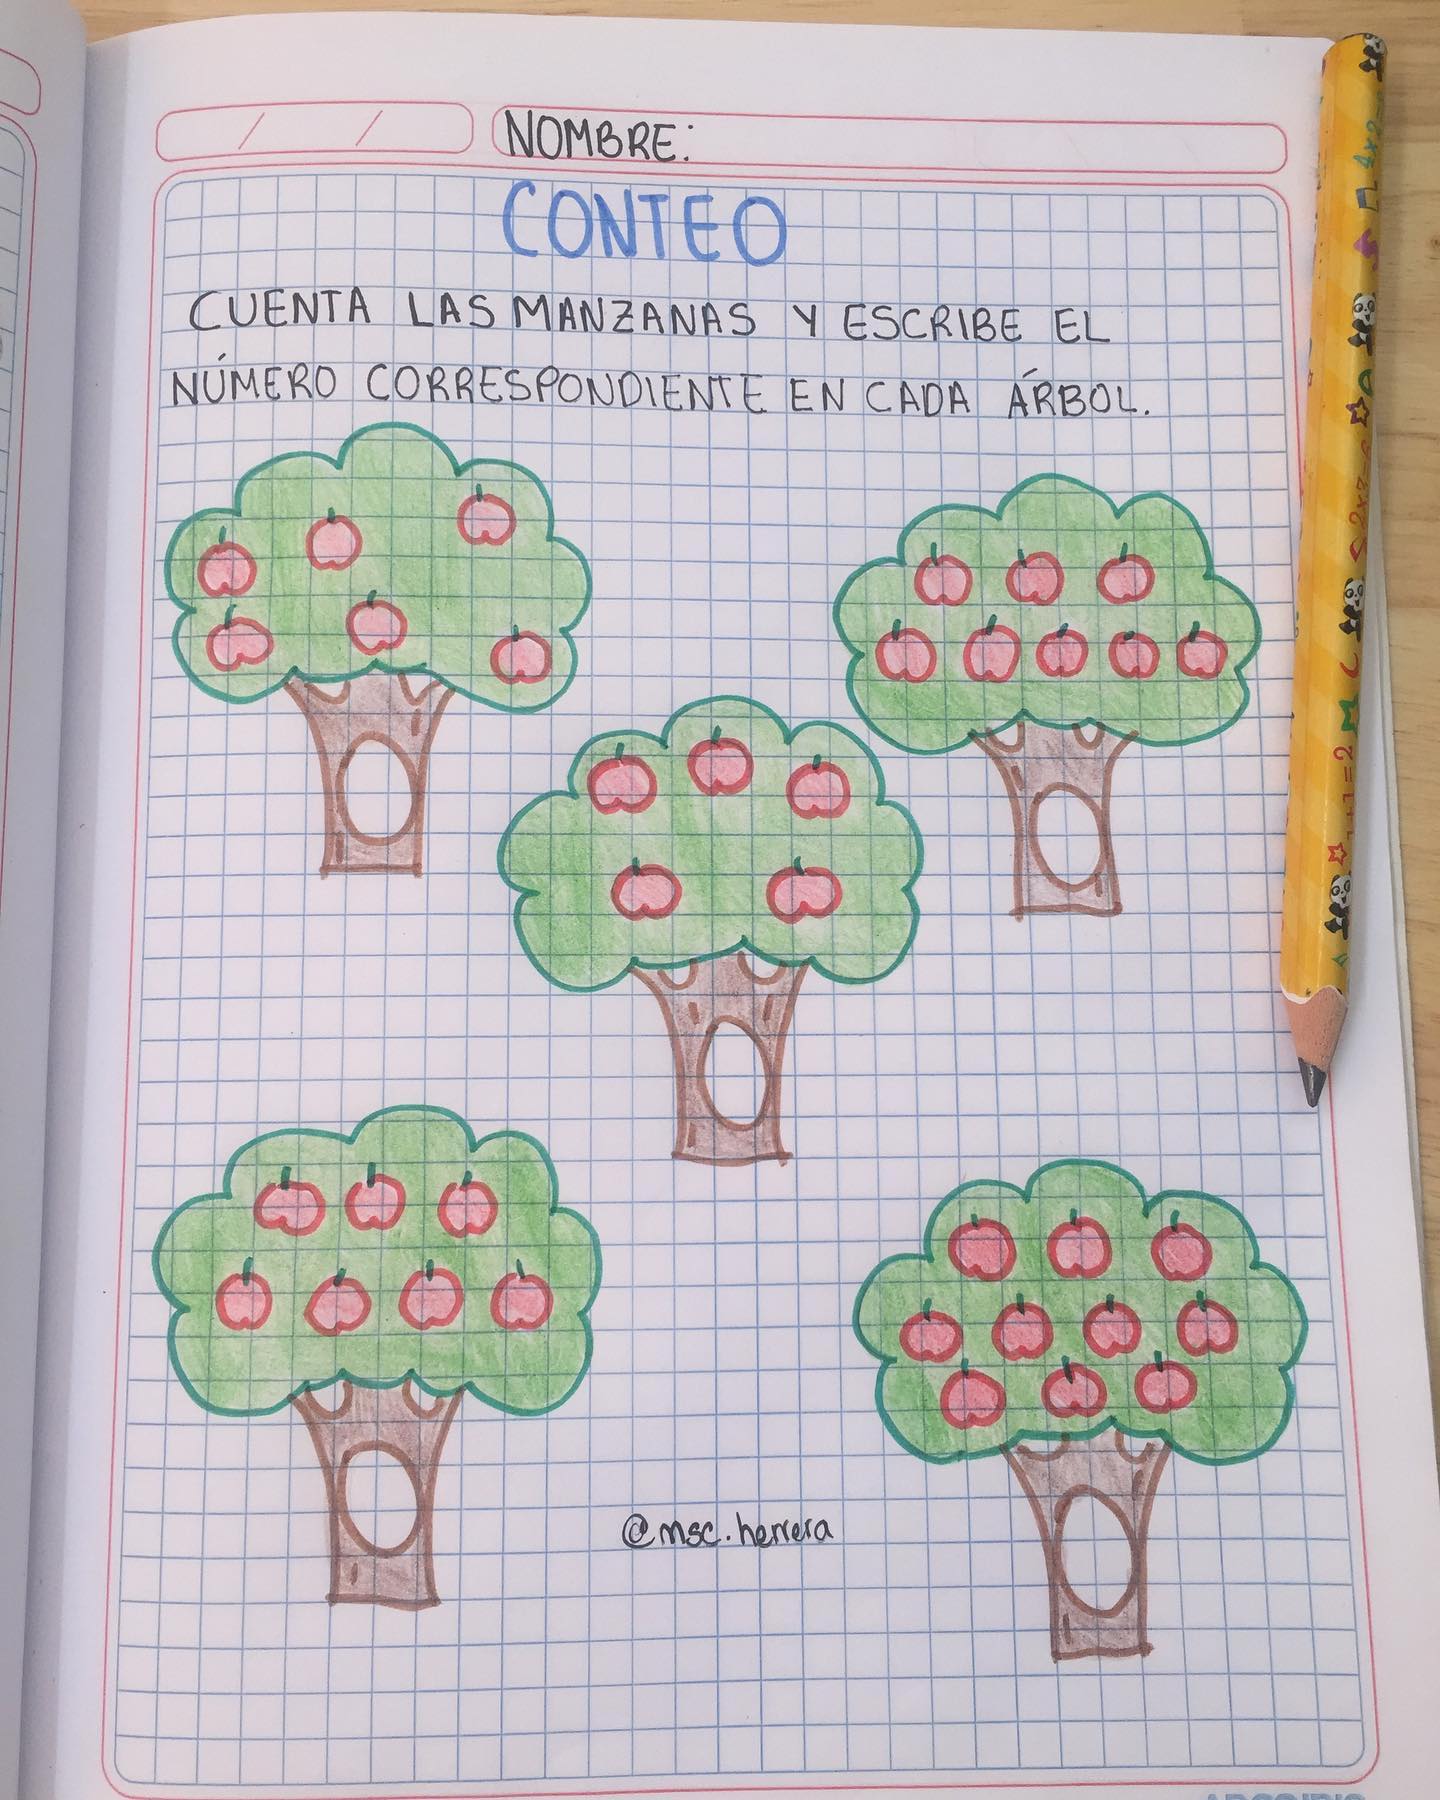 NOMBRE:
CONTEO
CUENTA LAS MANZANAS Y ESCRIBE EL
NÚMERO CORRESPONDIENTE EN CADA ÁRBOL.
@msc.herrera
1+1=2